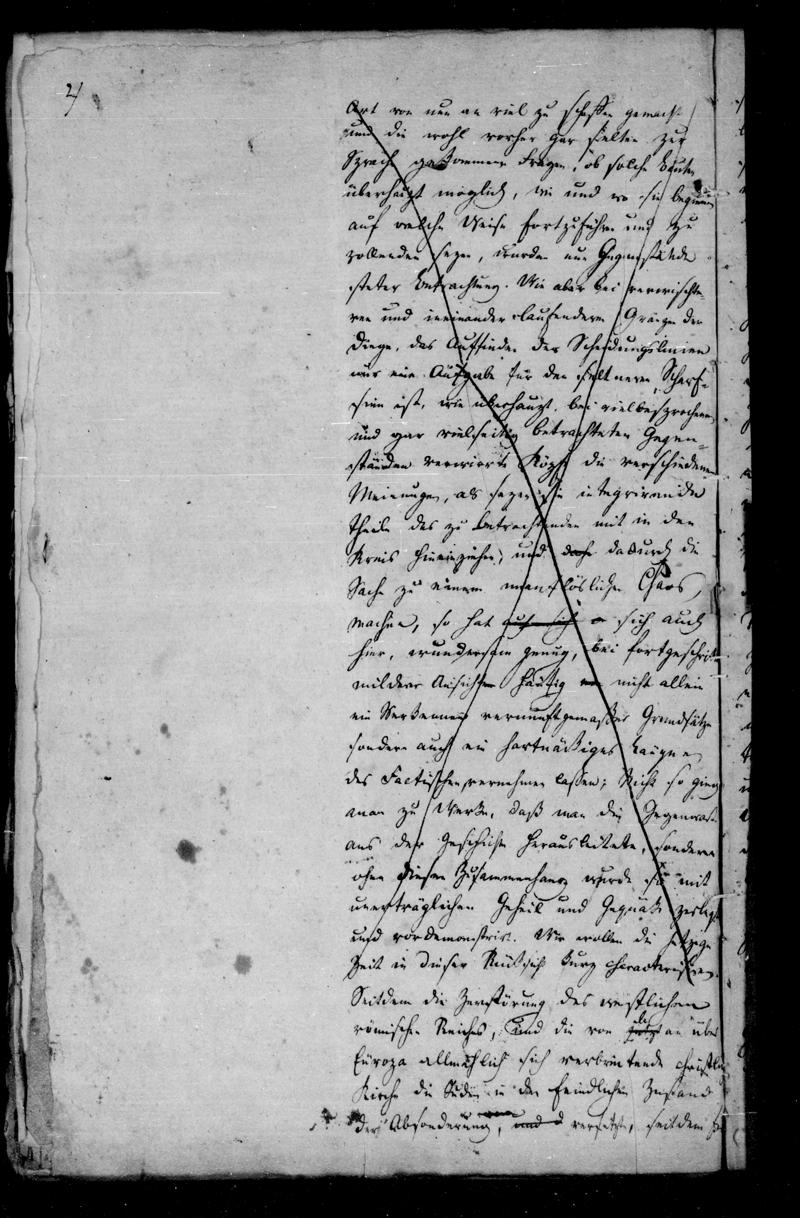 2/
Art von nun an viel zu schaffen gemacht
und die wohl vorher gar selten zur
Sprache gekommene Fragen, ob solche Leute
überhaupt möglich, wie und wo sie beginnen
auf welche Weise fortzuführen und zu
vollenden seyen, wurden nun Gegenstände
steter Betrachtung. Wie aber bei verwischte-
ren und ineinander laufenderen Gränzen der
Dinge, das Auffinden der Scheidungslinien
nur eine Aufgabe für den seltneren Scharf-
sinn ist, wie überhaupt bei vielbesprochenen
und gar vielseitig betrachteten Gegen-
ständen verwirrte Köpfe die verschiedenen
Meinungen, als seyen sie integrirende
Theile des zu betrachtenden mit in den
Kreis hineinziehen, und dadurch die
Sache zu einem unauflöslichen Chaos
machen, so hat auch sich sich auch
hier, wundersam genug, bei fortgeschritten
milderer Ansichten häufig nicht allein
ein Verkennen vernunftgemäßer Grundsätze
sondern auch ein hartnäckiges Läugnen
des Factischen vernehmen lassen; Nicht so ging
man zu Werke, daß man die Gegenwart
aus der Geschichte herausleitete, sondern
ohne diesen Zusammenhang wurde sie mit
unerträglichen und zerlegt
und vordemonstrirt. Wir wollen die jetzige
Zeit in dieser Rücksicht kurz characterisiren.
Seitdem die Zerstörung des westlichen
römischen Reiches, und die von da an über
Europa allmählich sich verbreitende christliche
Kirche die Juden in den feindlichen Zustand
der Absonderung, und versetzte, seitdem